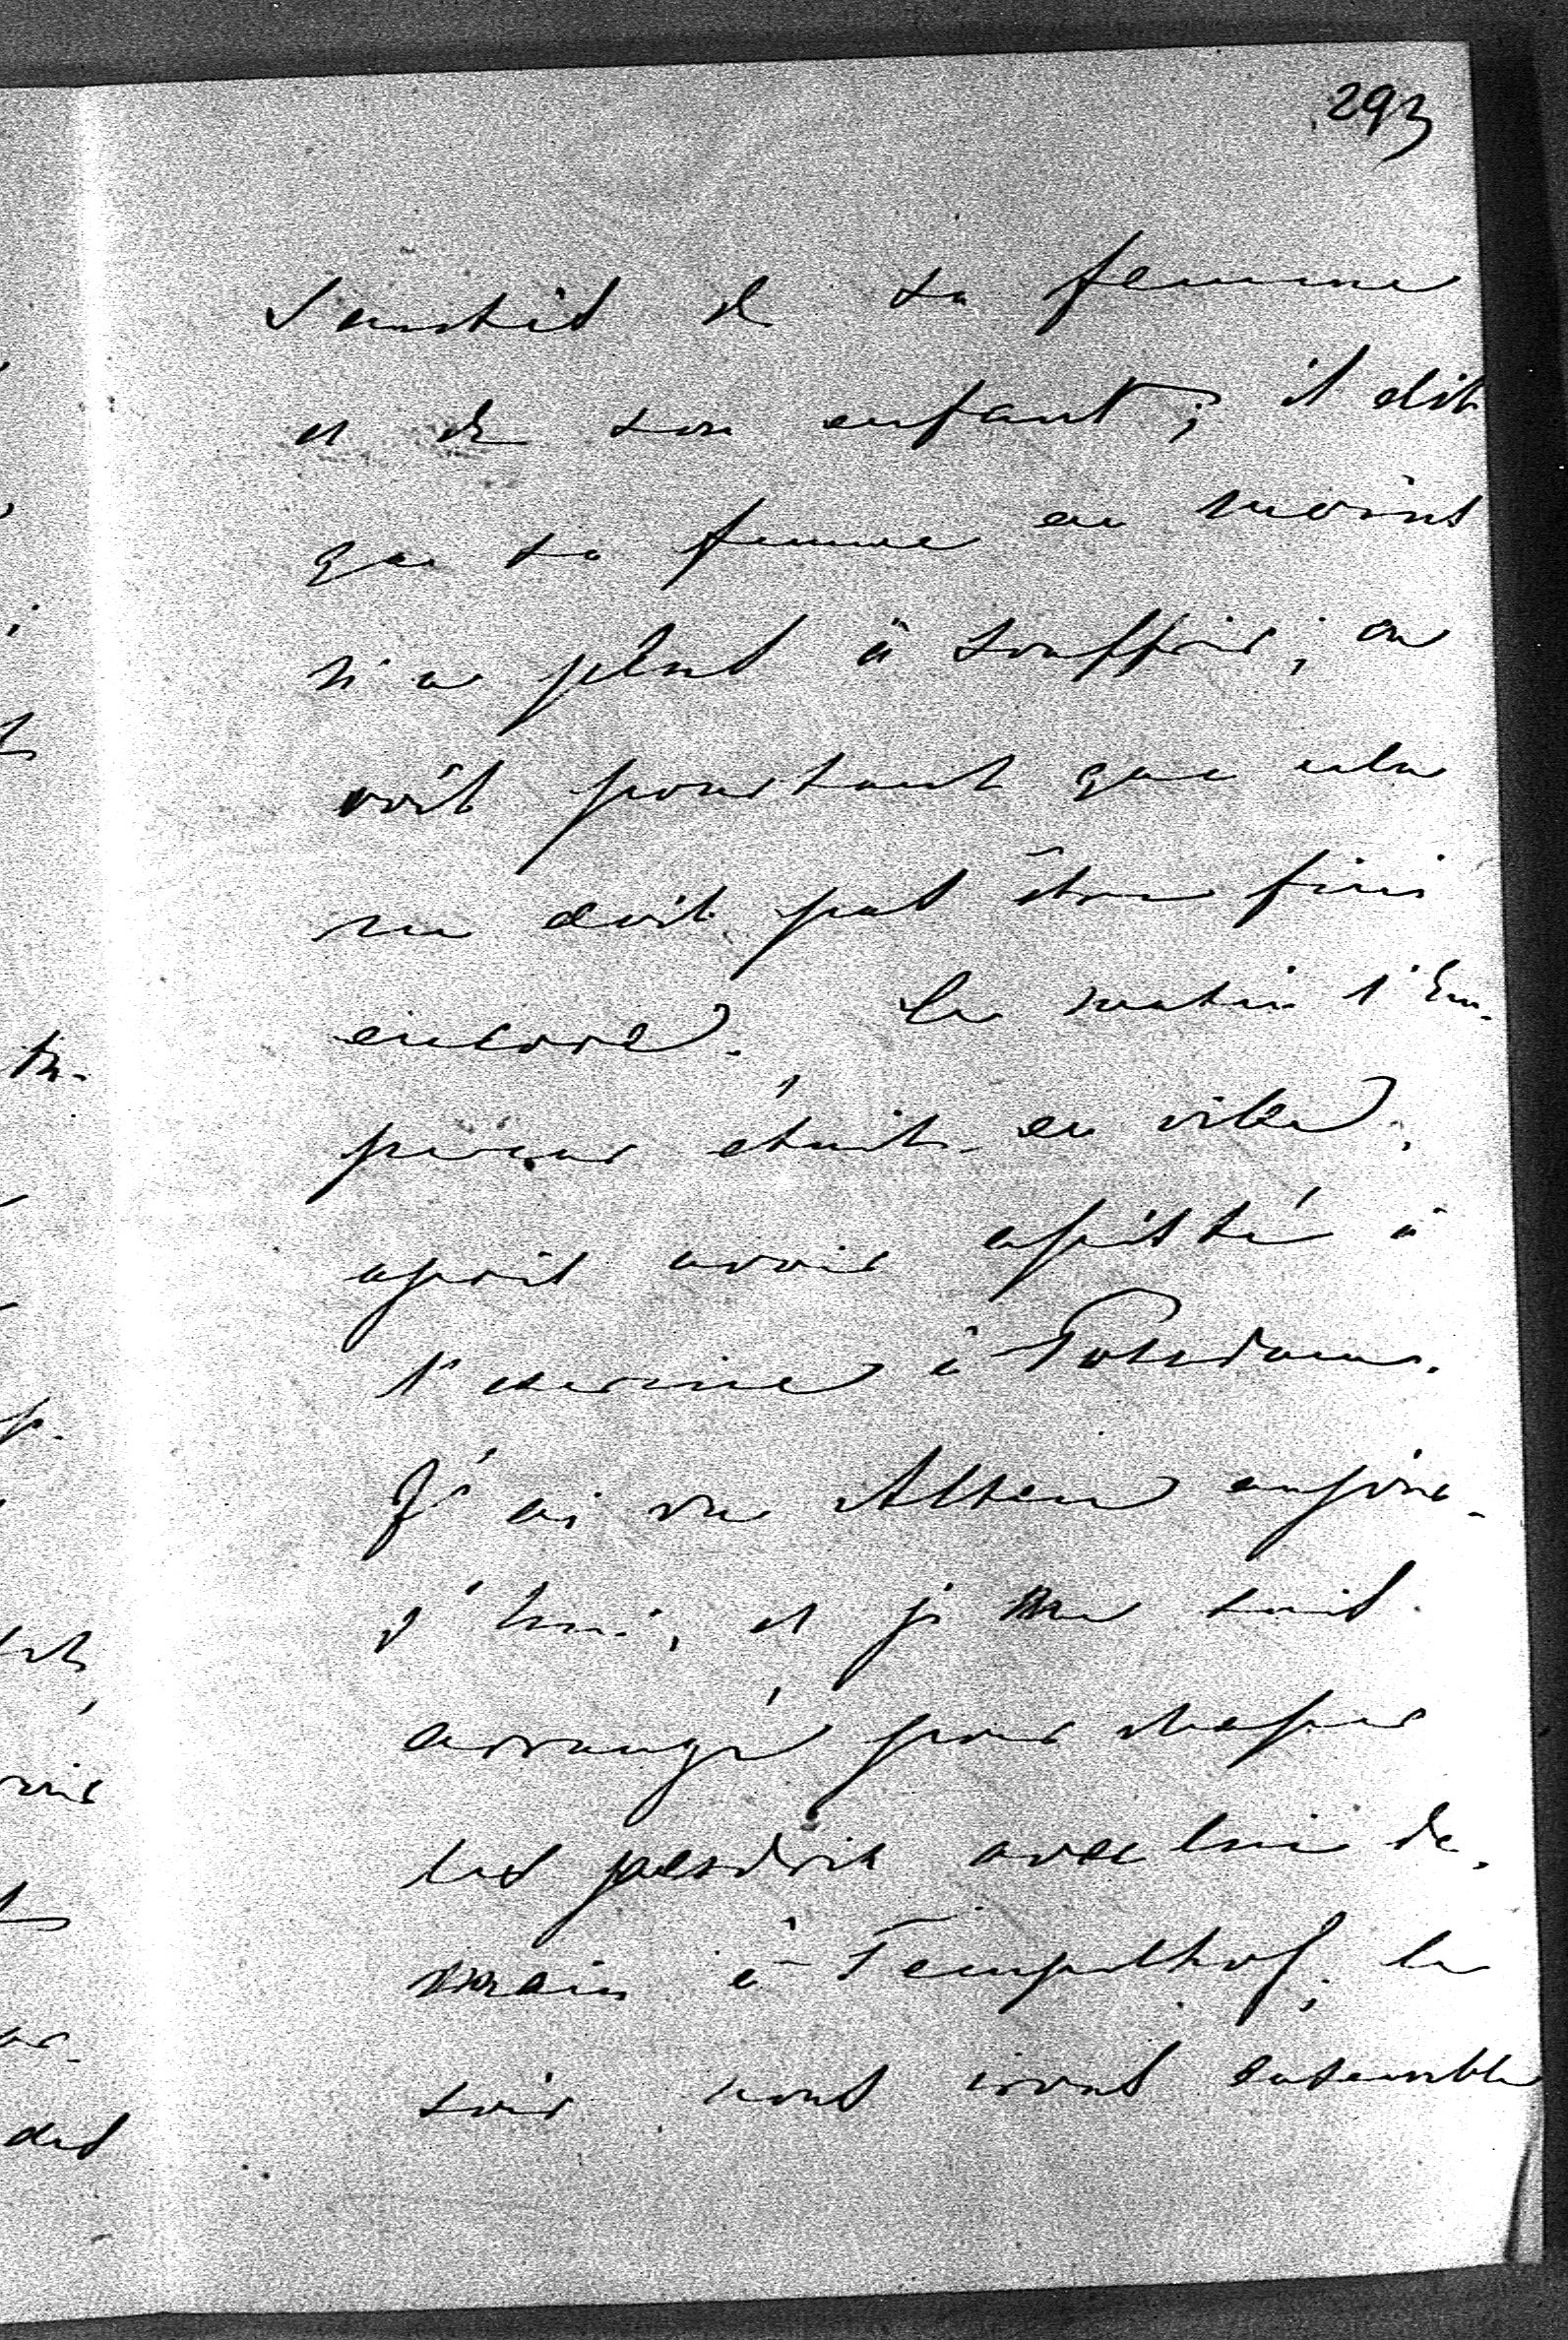 293
de sa femme
et de son enfant; il dit
que sa femme au moins
n'a plus à souffrir; on
voit pourtant que cela
ne doit pas être fini
encore. Le matin l'Em-
pereur était en ville,
après avoir assisté à
l'exercice à Potsdam.
J'ai vu Alten aujour-
d'hui, et je me suis
arrangé pour chasser
les perdrix avec lui de-
main à Tempelhof, le
soir nous irons ensemble
des